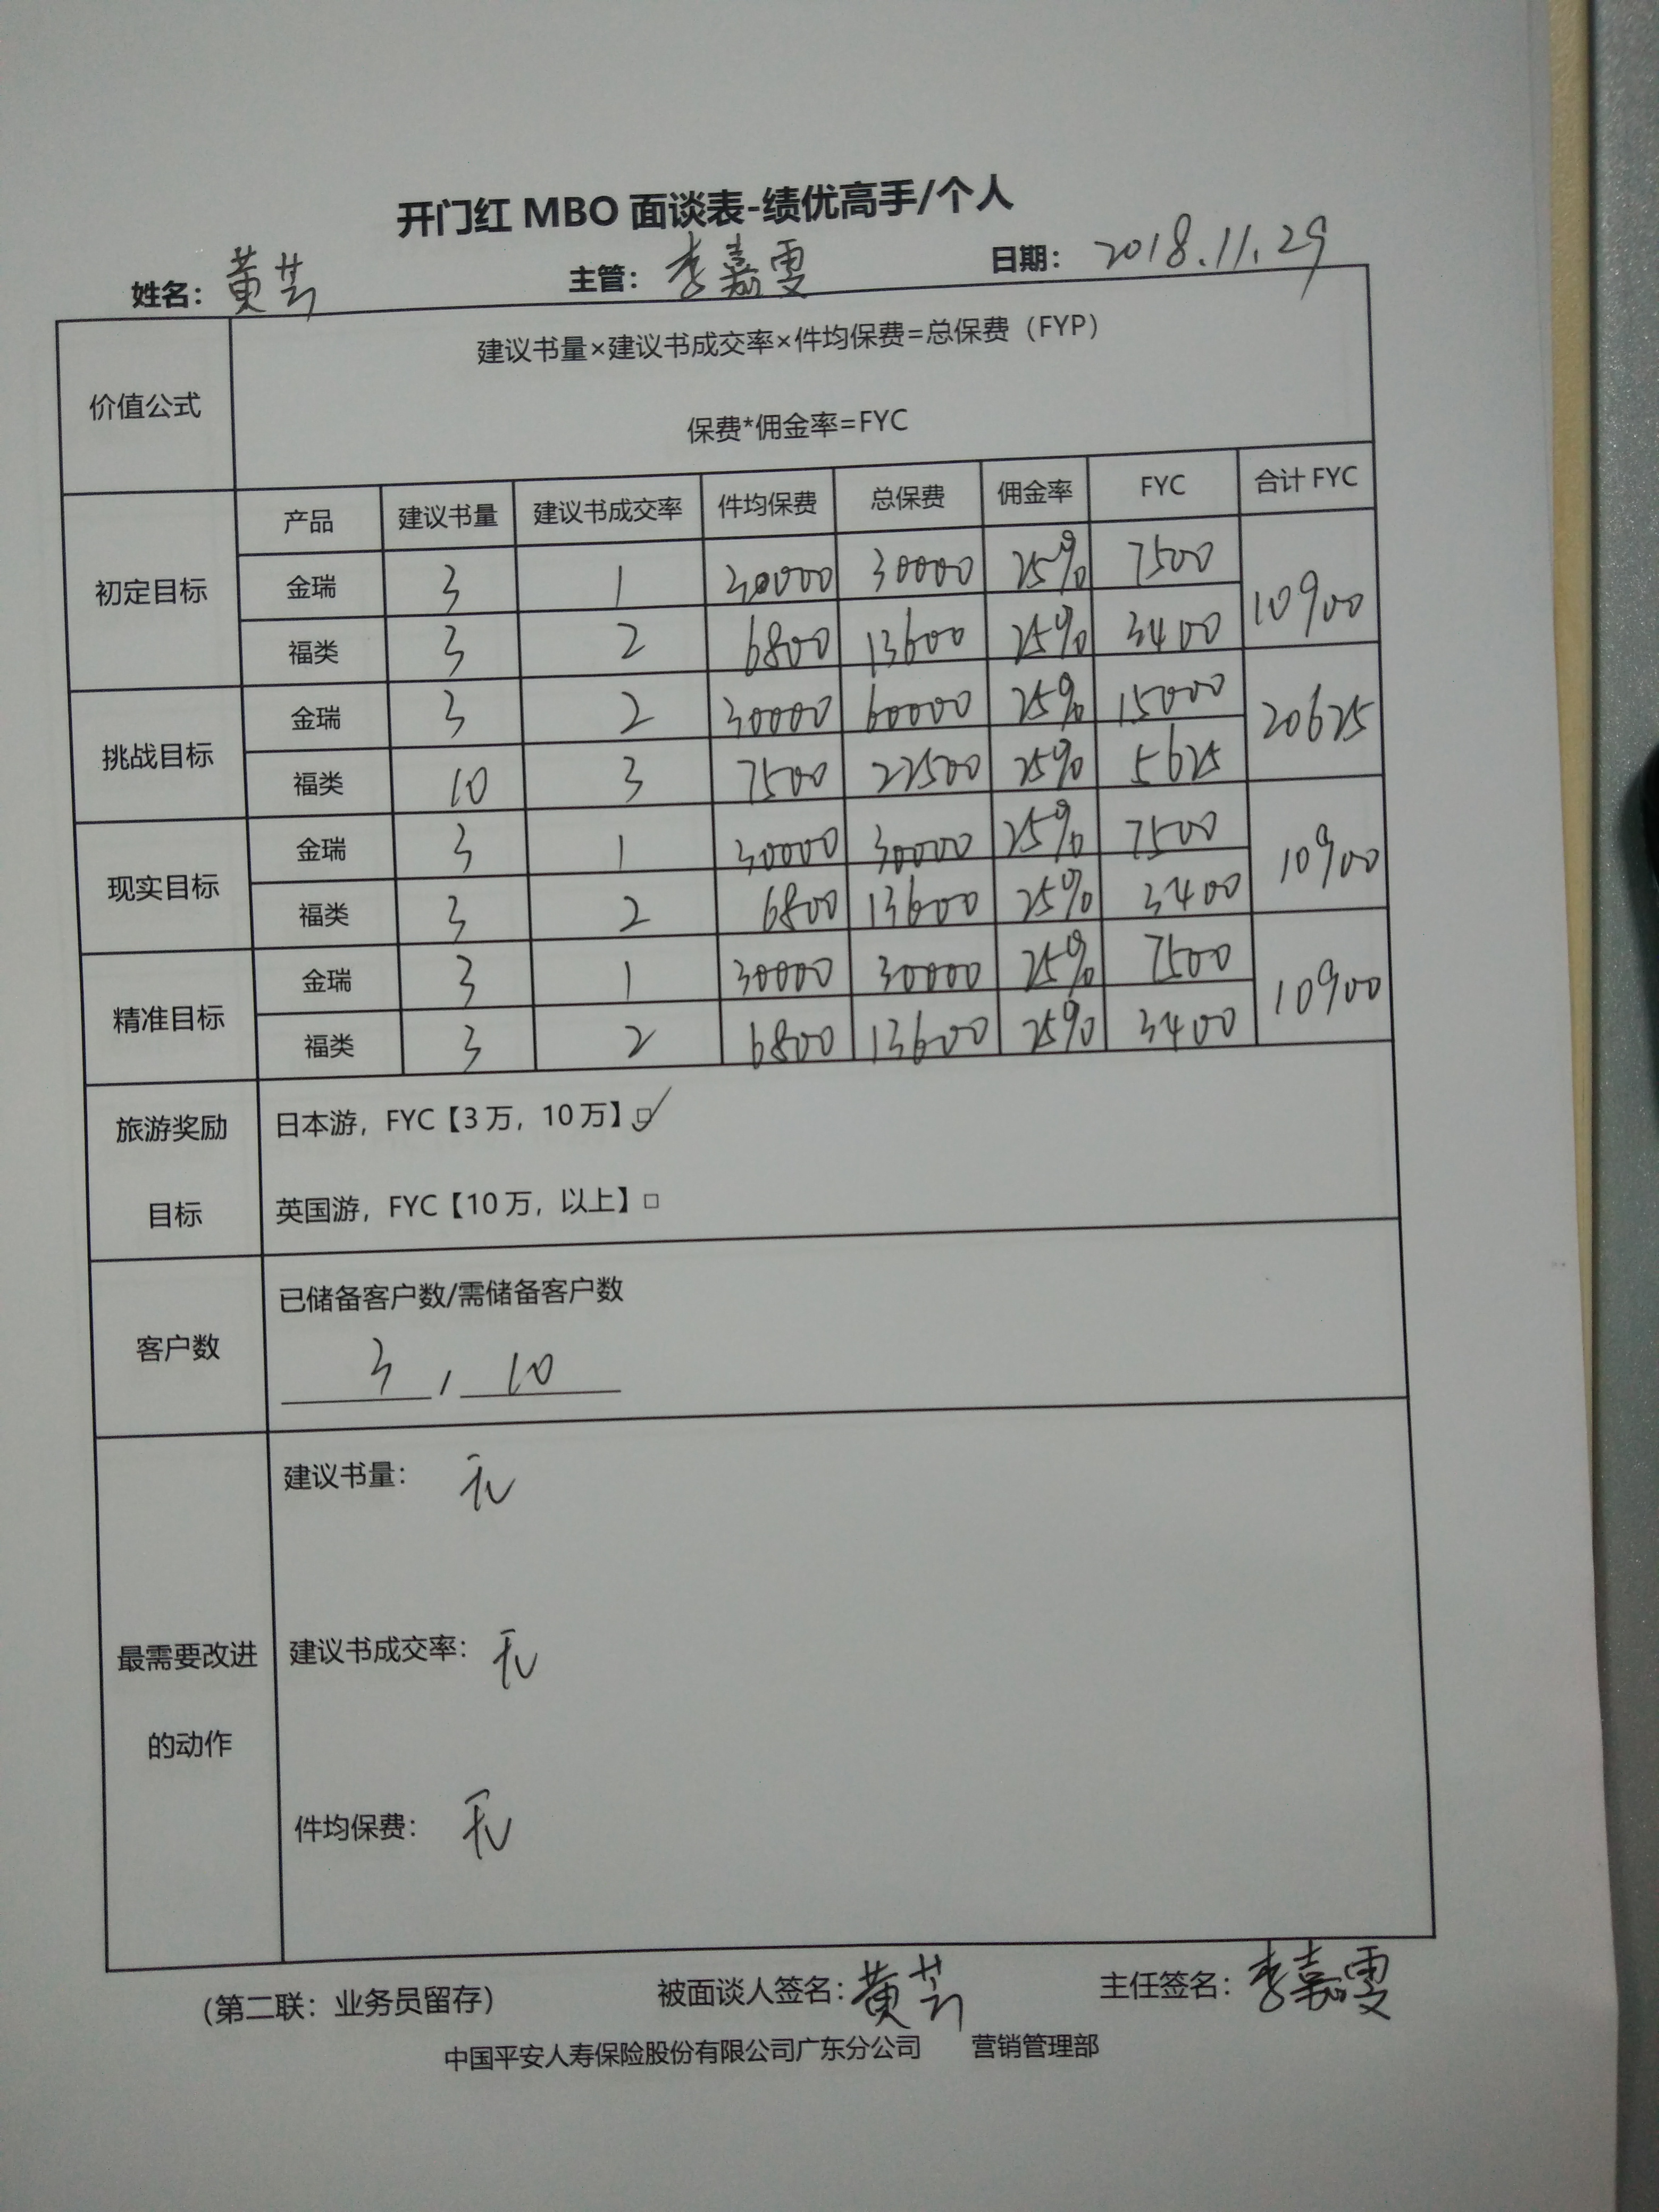 开门红 MBO 面谈表-绩优高手/个人
姓名：黄芸 主管：李嘉雯 日期：2018.11.29
价值公式
建议书量×建议书成交率×件均保费=总保费（FYP）
保费*佣金率=FYC
产品 建议书量 建议书成交率 件均保费 总保费 佣金率 FYC 合计 FYC
初定目标
金瑞 3 1 30000 30000 25% 7500
10900
福类 3 2 6800 13600 25% 3400
挑战目标
金瑞 3 2 30000 60000 25% 15000
20625
福类 10 3 7500 22500 25% 5625
现实目标
金瑞 3 1 30000 30000 25% 7500
10900
福类 3 2 6800 13600 25% 3400
精准目标
金瑞 3 1 30000 30000 25% 7500
10900
福类 3 2 6800 13600 25% 3400
旅游奖励
目标
日本游，FYC【3 万，10 万】□✓
英国游，FYC【10 万，以上】□
客户数
已储备客户数/需储备客户数
3 / 10
最需要改进
的动作
建议书量： 无
建议书成交率： 无
件均保费： 无
（第二联：业务员留存） 被面谈人签名：黄芸 主任签名：李嘉雯
中国平安人寿保险股份有限公司广东分公司 营销管理部